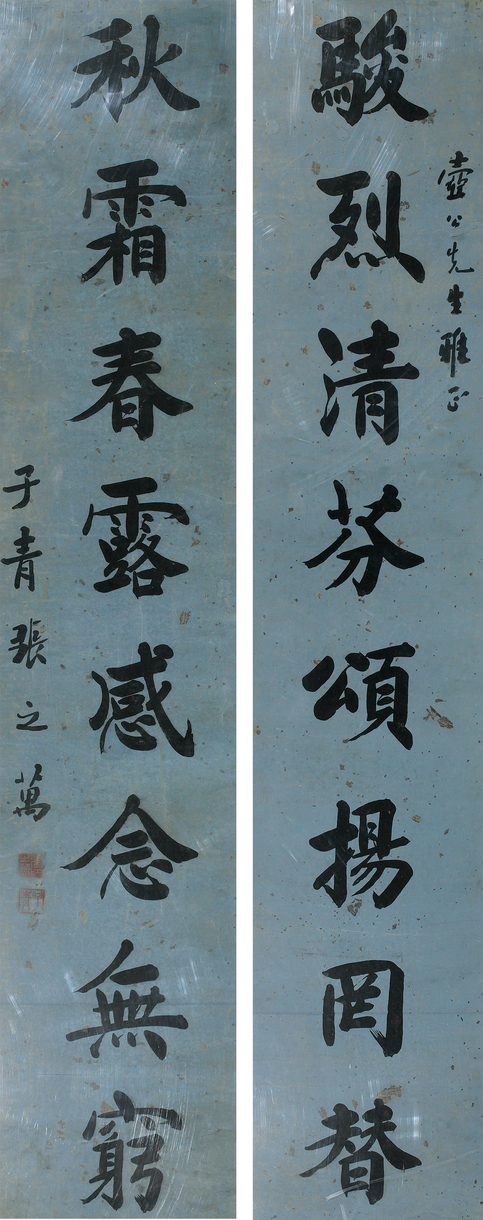 壺公先生雅正
駿烈清芬頌揚罔替
秋霜春露感念無窮
子青張之萬